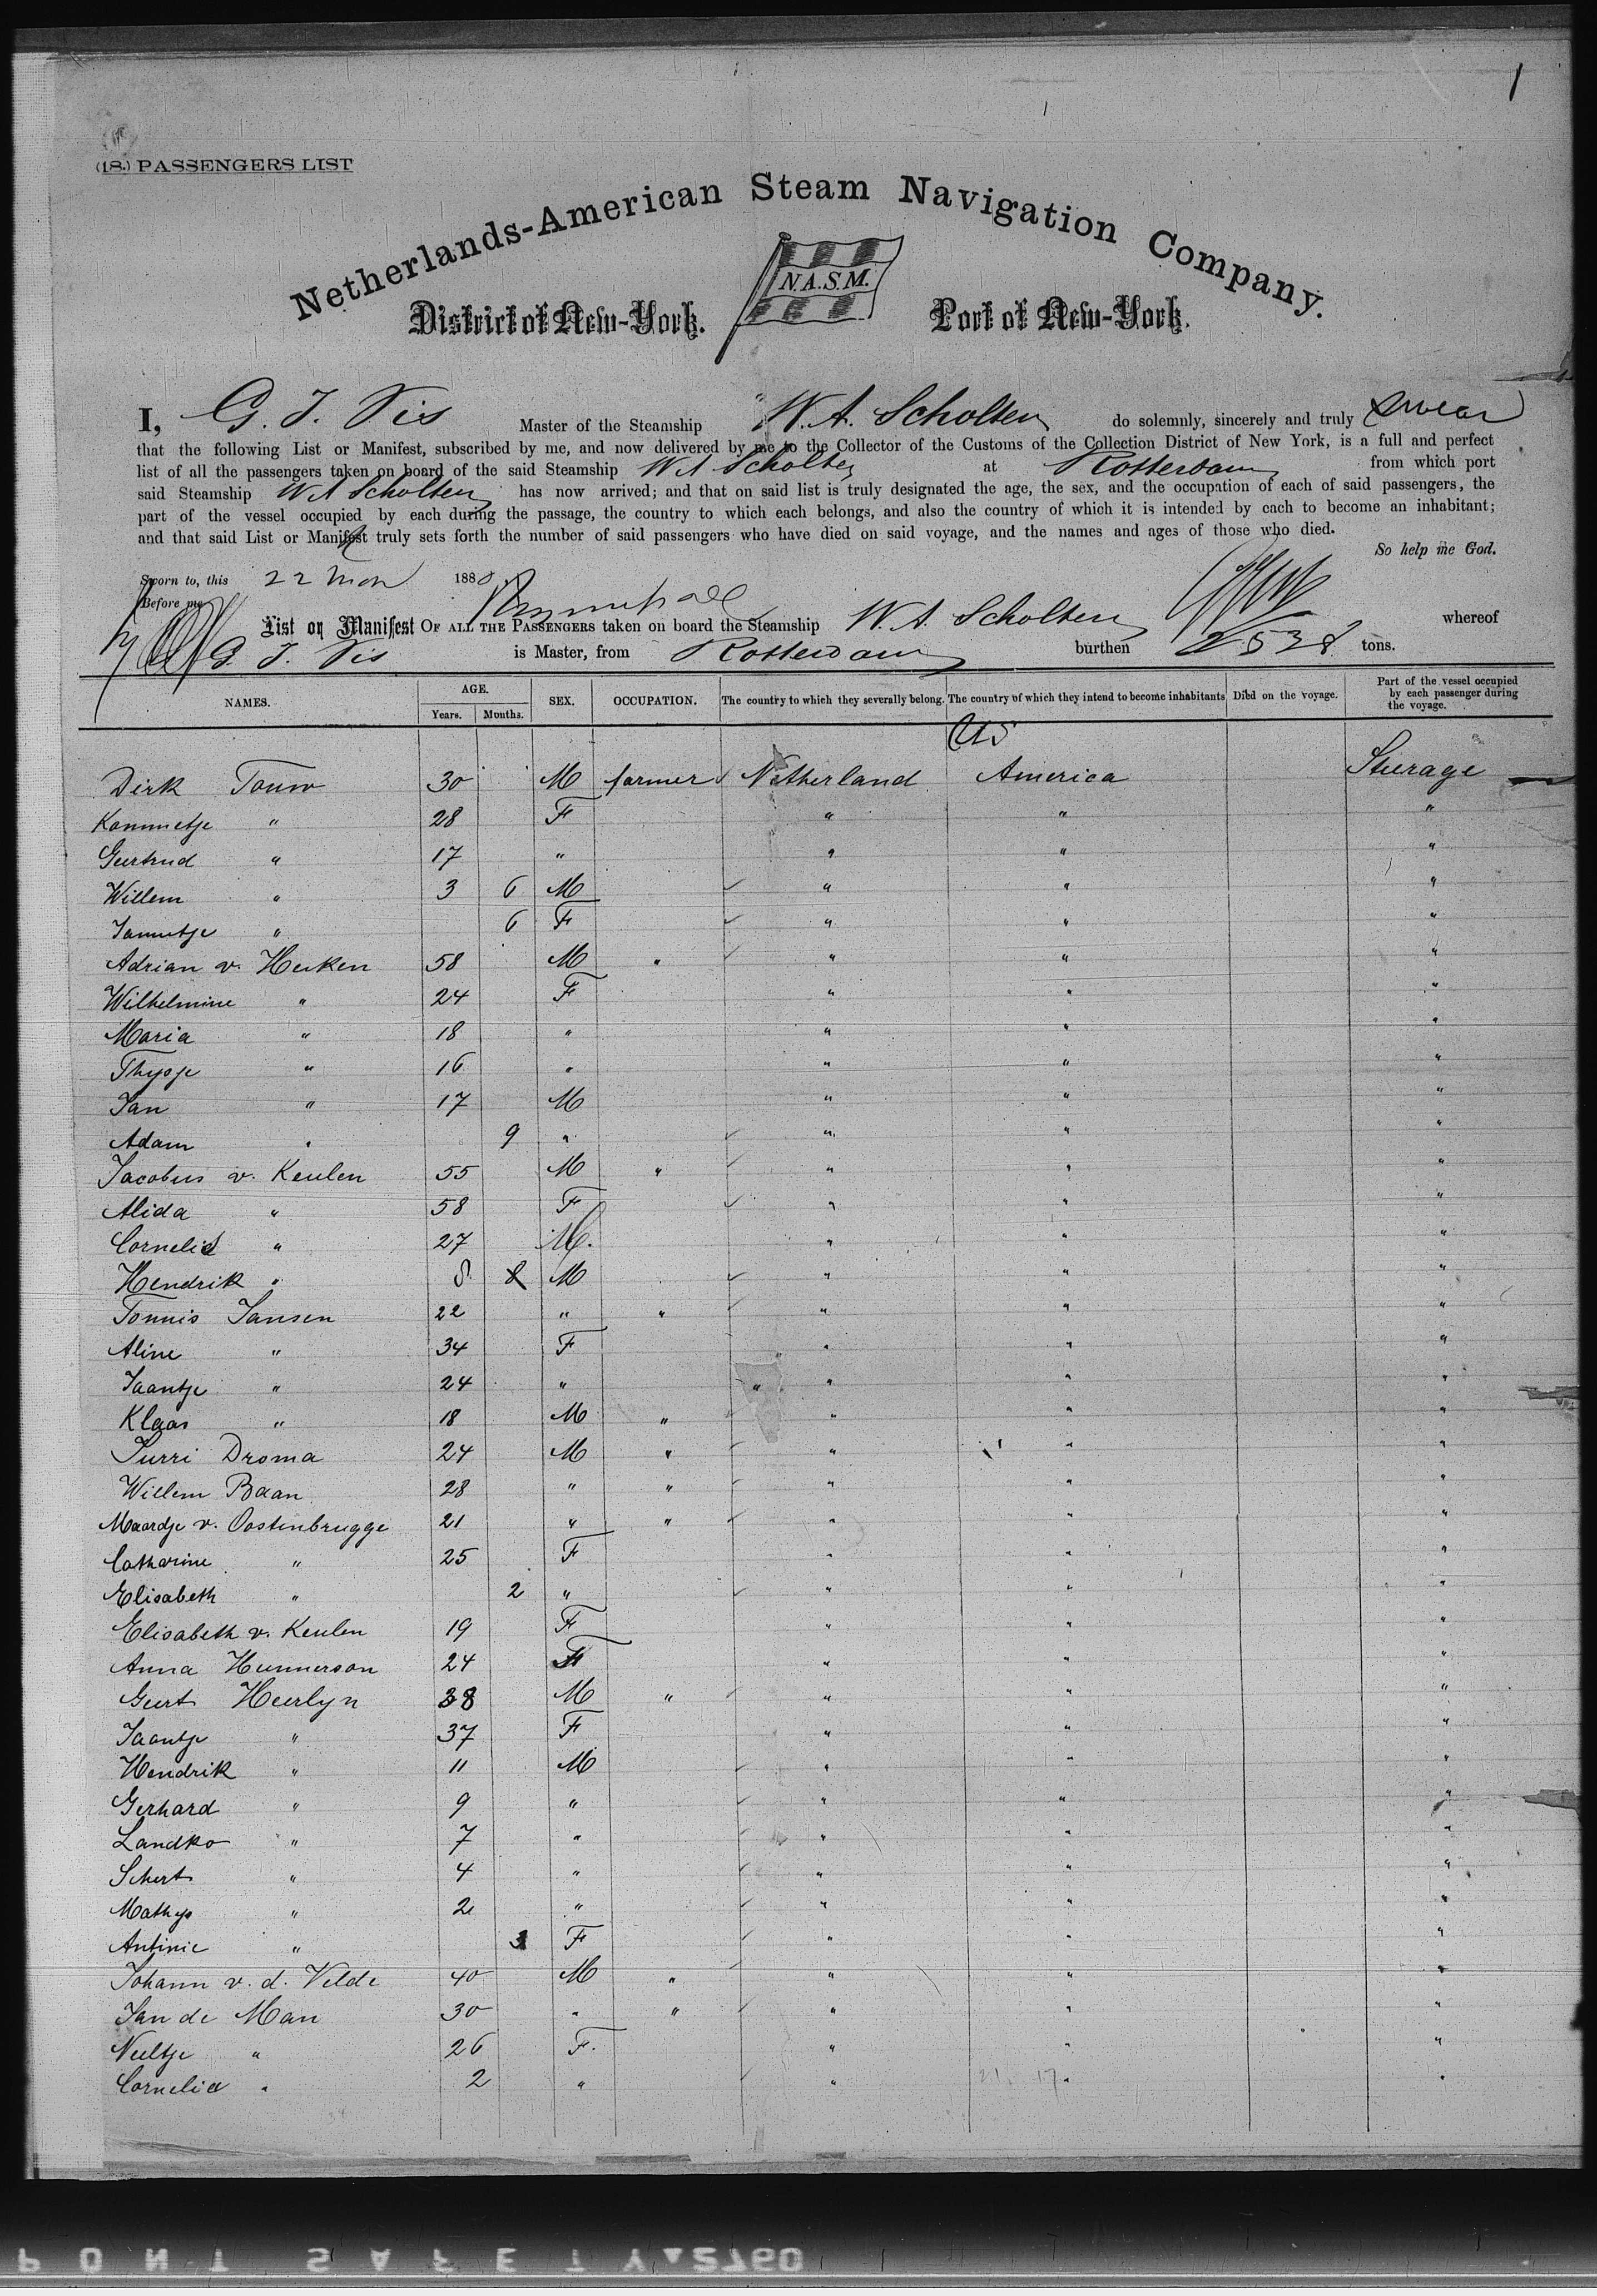 1
(18.) PASSENGERS LIST
Netherlands-American Steam Navigation Company.
N.A.S.M.
District of New-York. Port of New-York.
I, G. J. Vis Master of the Steamship "W. A. Scholten do solemnly, sincerely and truly swear
that the following List or Manifest, subscribed by me, and now delivered by me to the Collector of the Customs of the Collection District of New York, is a full and perfect
list of all the passengers taken on board of the said Steamship W A Scholten at Rotterdam from which port
said Steamship W A Scholten has now arrived; and that on said list is truly designated the age, the sex, and the occupation of each of said passengers, the
part of the vessel occupied by each during the passage, the country to which each belongs, and also the country of which it is intended by each to become an inhabitant;
and that said List or Manifest truly sets forth the number of said passengers who have died on said voyage, and the names and ages of those who died.
So help me God.
Sworn to, this 22 188
Before me
List or Manifest OF ALL THE PASSENGERS taken on board the Steamship W. A. Scholten whereof
G. J. Vis is Master, from Rotterdam burthen 2538 tons.
NAMES. AGE. Years. Months. SEX. OCCUPATION. The country to which they severally belong. The country of which they intend to become inhabitants Died on the voyage. Part of the vessel occupied by each passenger during the voyage.
US
Dirk Touw 30 M farmer Netherland America Steerage
Kommetje " 28 F " " "
Geertrud " 17 " " " "
Willem " 3 6 M " " "
Jannetje " 6 F " " "
Adrian v. Heeken 58 M " " " "
Wilhelmine " 24 F " " "
Maria " 18 " " " "
Thysje " 16 " " " "
Jan " 17 M " " "
Adam " 9 " " " "
Jacobus v. Keulen 55 M " " " "
Alida " 58 F " " "
Cornelis " 27 M. " " "
Hendrik " 8 M " " "
Tonnis Jansen 22 " " " " "
Aline " 34 F " " "
Jaantje " 24 " " " "
Klaas " 18 M " " " "
Jurri Droma 24 M " " " "
Willem Baan 28 " " " " "
Maardje v. Oostenbrugge 21 " " " " "
Catharine " 25 F " " "
Elisabeth " 2 " " " "
Elisabeth v. Keulen 19 F " " "
Anna Hunnerson 24 F " " "
Geert Heerlyn 38 M " " " "
Jaantje " 37 F " " "
Hendrik " 11 M " " "
Gerhard " 9 " " " "
Landko " 7 " " " "
Schert " 4 " " " "
Mathys " 2 " " " "
Antinie " 3 F " " "
Johann v. d. Velde 40 M " " " "
Jan de Man 30 " " " " "
Neeltje " 26 F. " " "
Cornelia " 2 " " " "
PONT SAFETY 2760